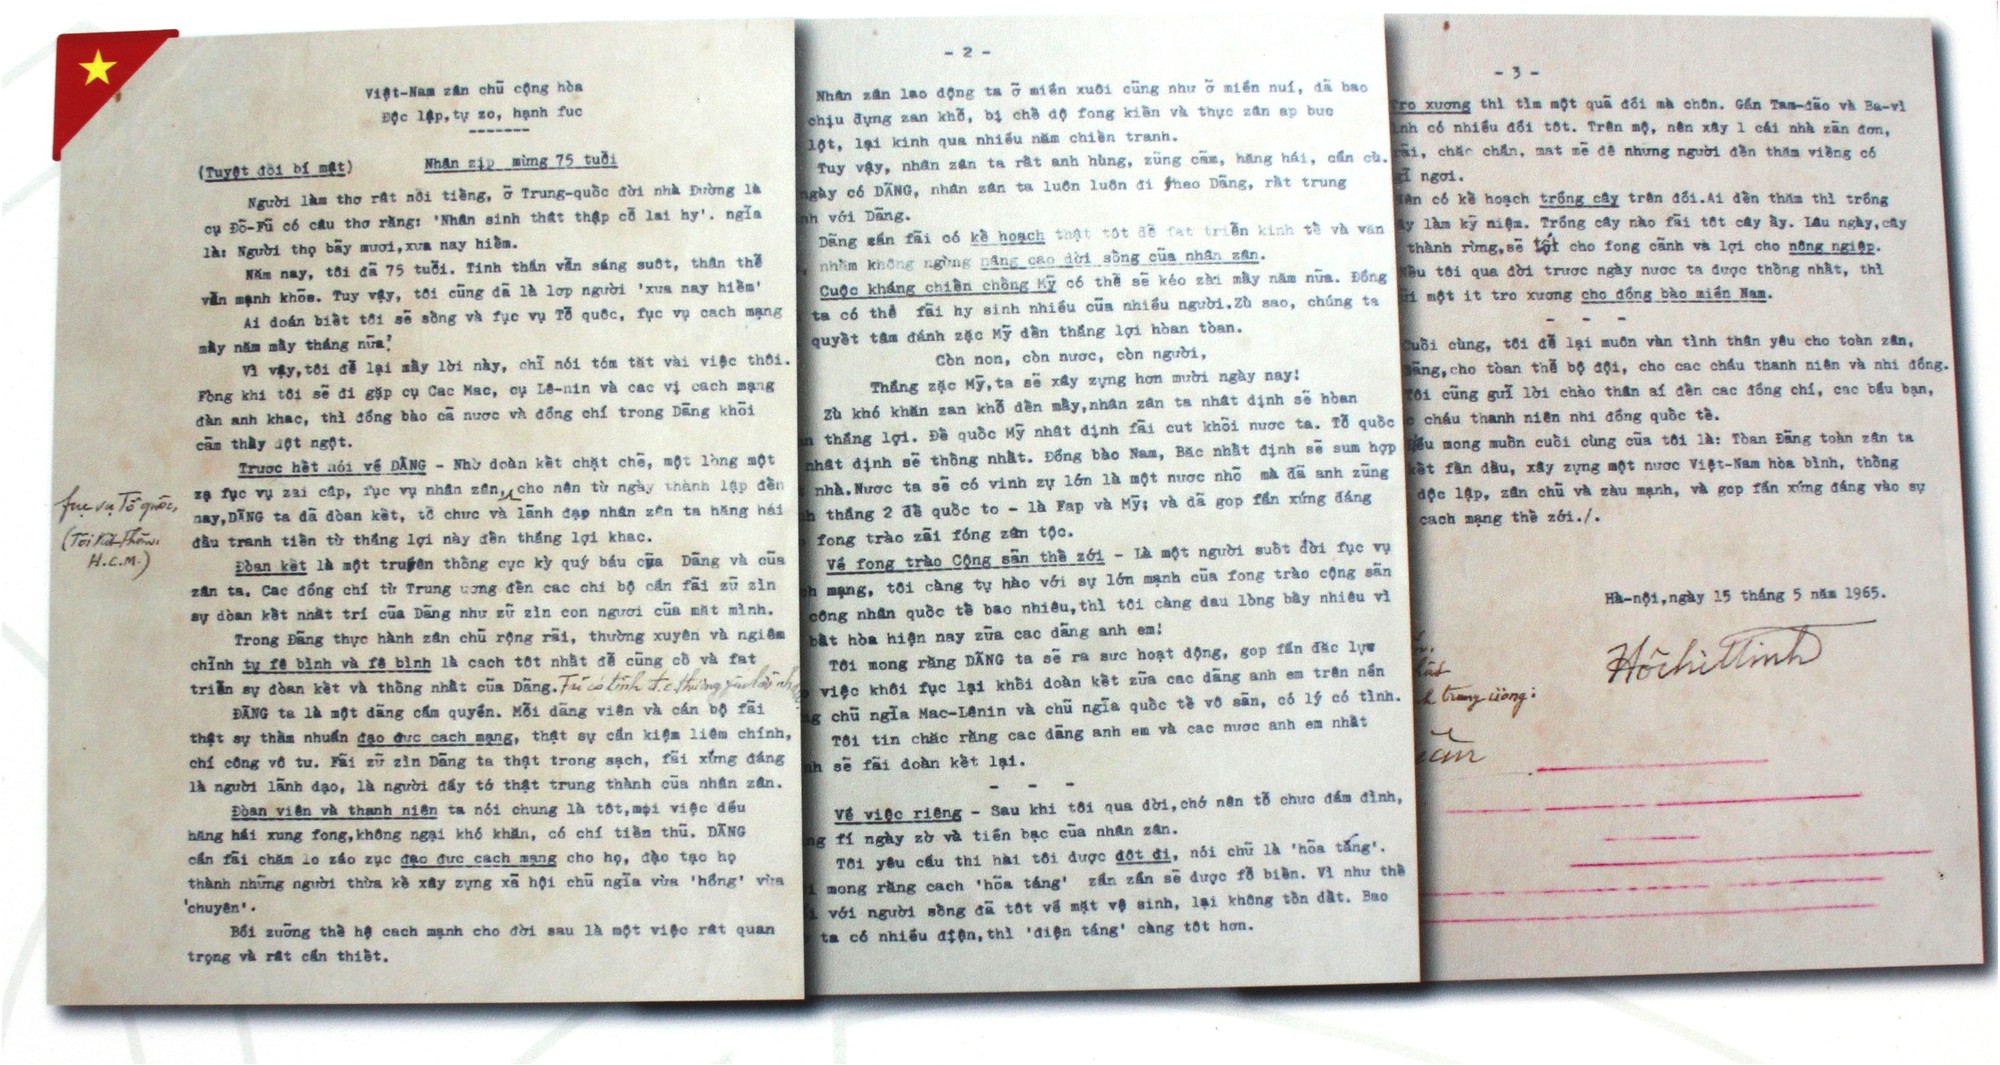 Việt-Nam zân chủ cộng hòa
Độc lập,tự zo, hạnh fuc
-------
(Tuyệt đối bí mật) Nhân zịp mừng 75 tuổi
Người làm thơ rất nổi tiếng, ở Trung-quốc đời nhà Đường là
cụ Đỗ-Fủ có câu thơ rằng: 'Nhân sinh thất thập cổ lai hy'. ngĩa
là: Người thọ bẩy mươi,xưa nay hiếm.
Năm nay, tôi đã 75 tuổi. Tinh thần vẫn sáng suốt, thân thể
vẫn mạnh khỏe. Tuy vậy, tôi cũng đã là lơp người 'xưa nay hiếm'
Ai đoán biết tôi sẽ sống và fục vụ Tổ quốc, fục vụ cach mạng
mấy năm mấy tháng nữa!
Vì vậy,tôi để lại mấy lời này, chỉ nói tóm tăt vài việc thôi.
Fòng khi tôi sẽ đi gặp cụ Cac Mac, cụ Lê-nin và cac vị cach mạng
đàn anh khac, thì đồng bào cả nươc và đồng chí trong Đảng khỏi
cảm thấy đột ngột.
Trươc hết nói về ĐẢNG - Nhờ đoàn kết chặt chẽ, một lòng một
zạ fục vụ zai cấp, fục vụ nhân zân, cho nên từ ngày thành lập đến
nay,ĐẢNG ta đã đòan kết, tổ chưc và lãnh đạo nhân zân ta hăng hái
đấu tranh tiến từ thắng lợi này đến thắng lợi khac.
fục vụ Tổ quốc,
H.C.M.)
Đòan kết là một truyền thống cực kỳ quý báu của Đảng và của
zân ta. Cac đồng chí từ Trung ương đến cac chi bộ cần fải zữ zìn
sự đòan kết nhất trí của Đảng như zữ zìn con ngươi của măt mình.
Trong Đảng thực hành zân chủ rộng rãi, thường xuyên và ngiêm
chỉnh tự fê bình và fê bình là cach tốt nhất để củng cố và fat
triển sự đòan kết và thống nhất của Đảng. Fải có tình đ.c thương yêu lẫn nhau
ĐẢNG ta là một đảng cầm quyền. Mỗi đảng viên và cán bộ fải
thật sự thấm nhuần đạo đưc cach mạng, thật sự cần kiệm liêm chính,
chí công vô tư. Fải zữ zìn Đảng ta thật trong sạch, fải xứng đáng
là người lãnh đạo, là người đầy tớ thật trung thành của nhân zân.
Đòan viên và thanh niên ta nói chung là tốt,mọi việc đều
hăng hái xung fong,không ngại khó khăn, có chí tiến thủ. ĐẢNG
cần fải chăm lo záo zục đạo đưc cach mạng cho họ, đào tạo họ
thành những người thừa kế xây zựng xã hội chủ ngĩa vừa 'hồng' vừa
'chuyên'.
Bồi zưỡng thế hệ cach mạnh cho đời sau là một việc rất quan
trọng và rất cần thiết.
- 2 -
Nhân zân lao động ta ở miền xuôi cũng như ở miền nuí, đã bao
chịu đựng zan khổ, bị chế độ fong kiến và thực zân ap bưc
lột, lại kinh qua nhiều năm chiến tranh.
Tuy vậy, nhân zân ta rất anh hùng, zũng cảm, hăng hái, cần cù.
ngày có ĐẢNG, nhân zân ta luôn luôn đi theo Đảng, rất trung
nh với Đảng.
Đảng cần fải có kế hoạch thật tốt để fat triển kinh tế và văn
nhằm không ngừng nâng cao đời sống của nhân zân.
Cuộc kháng chiến chống Mỹ có thể sẽ kéo zài mấy năm nữa. Đồng
ta có thể fải hy sinh nhiều của nhiều người.Zù sao, chúng ta
quyết tâm đánh zặc Mỹ đến thắng lợi hòan tòan.
Còn non, còn nươc, còn người,
Thắng zặc Mỹ,ta sẽ xây zựng hơn mười ngày nay!
Zù khó khăn zan khổ đến mấy,nhân zân ta nhất định sẽ hòan
n thắng lợi. Đế quốc Mỹ nhất định fải cut khỏi nươc ta. Tổ quốc
nhất định sẽ thống nhất. Đồng bào Nam, Băc nhất định sẽ sum họp
nhà.Nươc ta sẽ có vinh zự lớn là một nươc nhỏ mà đã anh zũng
h thắng 2 đế quốc to - là Fap và Mỹ; và đã gop fần xứng đáng
fong trào zải fóng zân tộc.
Về fong trào Cộng sản thế zới - Là một người suốt đời fục vụ
h mạng, tôi càng tự hào với sự lớn mạnh của fong trào cộng sản
công nhân quốc tế bao nhiêu,thì tôi càng đau lòng bấy nhiêu vì
bất hòa hiện nay zữa cac đảng anh em!
Tôi mong rằng ĐẢNG ta sẽ ra sưc hoạt động, gop fần đăc lực
việc khôi fục lại khối đoàn kết zữa cac đảng anh em trên nền
g chủ ngĩa Mac-Lênin và chủ ngĩa quốc tế vô sản, có lý có tình.
Tôi tin chăc rằng cac đảng anh em và cac nươc anh em nhất
nh sẽ fải đoàn kết lại.
- -
Về việc riêng - Sau khi tôi qua đời,chớ nên tổ chưc đám đình,
ng fí ngày zờ và tiền bạc của nhân zân.
Tôi yêu cầu thi hài tôi được đốt đi, nói chữ là 'hỏa táng'.
i mong rằng cach 'hỏa táng' zần zần sẽ được fổ biến. Vì như thế
i với người sống đã tốt về mặt vệ sinh, lại không tốn đất. Bao
ta có nhiều điện,thì 'điện táng' càng tốt hơn.
- 3 -
Tro xương thì tìm một quả đồi mà chôn. Gần Tam-đảo và Ba-vì
nh có nhiều đồi tốt. Trên mộ, nên xây 1 cái nhà zản đơn,
rãi, chăc chắn, mat mẻ để những người đến thăm viếng có
ỉ ngơi.
Nên có kế hoạch trồng cây trên đồi.Ai đến thăm thì trồng
ây làm kỷ niệm. Trồng cây nào fải tốt cây ấy. Lâu ngày,cây
thành rừng,sẽ tốt cho fong cảnh và lợi cho nông ngiệp.
Nếu tôi qua đời trươc ngày nươc ta được thống nhất, thì
ửi một it tro xương cho đồng bào miền Nam.
- - -
Cuối cùng, tôi để lại muôn vàn tình thân yêu cho toàn zân,
Đảng,cho toàn thể bộ đội, cho cac cháu thanh niên và nhi đồng.
Tôi cũng gửi lời chào thân aí đến cac đồng chí, cac bầu bạn,
c cháu thanh niên nhi đồng quốc tế.
Điều mong muốn cuối cùng của tôi là: Tòan Đảng toàn zân ta
kết fấn đấu, xây zựng một nươc Việt-Nam hòa bình, thống
độc lập, zân chủ và zàu mạnh, và gop fần xứng đáng vào sự
cach mạng thế zới./.
Hà-nội,ngày 15 tháng 5 năm 1965.
HồchiMinh
trung ương: